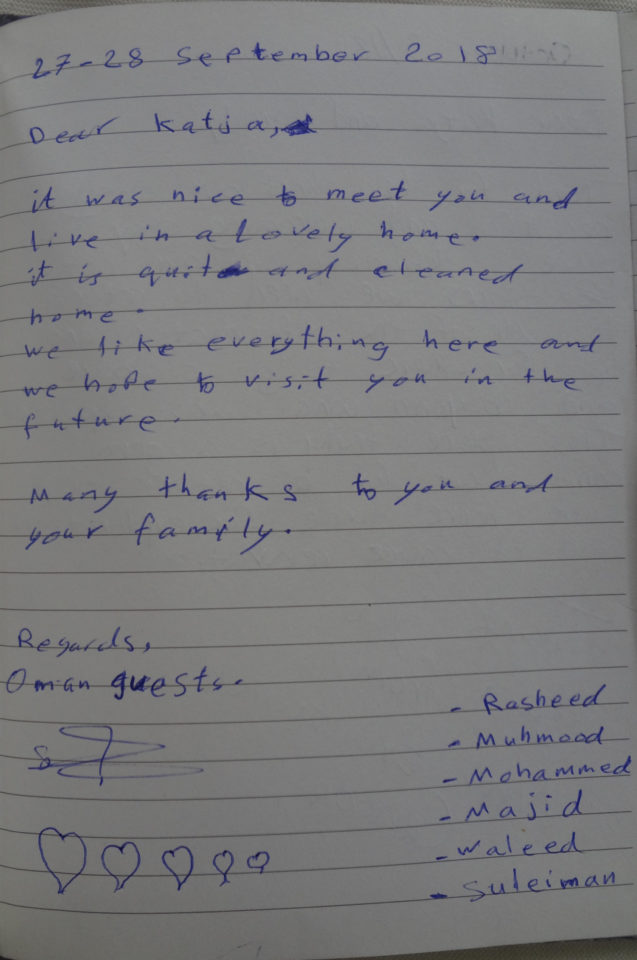 27-28 September 2018
Dear Katja,
it was nice to meet you and
live in a lovely home.
it is quite and cleaned
home.
we like everything here and
we hope to visit you in the
future.
Many thanks to you and
your family.
Regards,
Oman guests.
- Rasheed
- Muhmood
- Mohammed
- Majid
- Waleed
- Suleiman